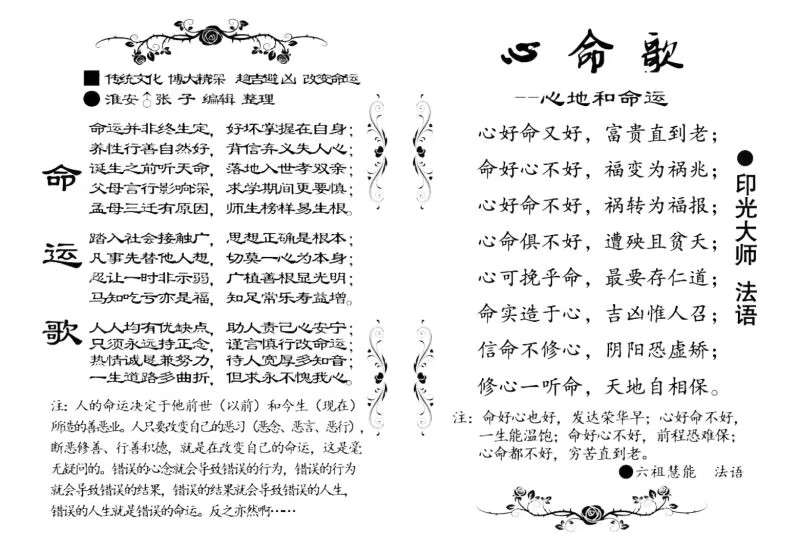 ■传统文化 博大精深 趋吉避凶 改变命运
●淮安 张 子 编辑 整理
命运歌
命运并非终生定，好坏掌握在自身；
养性行善自然好，背信弃义失人心；
诞生之前听天命，落地入世孝双亲；
父母言行影响深，求学期间更要慎；
孟母三迁有原因，师生榜样易生根。
踏入社会接触广，思想正确是根本；
凡事先替他人想，切莫一心为本身；
忍让一时非示弱，广植善根显光明；
马知吃亏亦是福，知足常乐寿益增。
人人均有优缺点，助人责己心安宁；
只须永远持正念，谨言慎行改命运；
热情诚恳兼努力，待人宽厚多知音；
一生道路多曲折，但求永不愧我心。
注：人的命运决定于他前世（以前）和今生（现在）
所造的善恶业。人只要改变自己的恶习（恶念、恶言、恶行），
断恶修善、行善积德，就是在改变自己的命运，这是毫
无疑问的。错误的心念就会导致错误的行为，错误的行为
就会导致错误的结果，错误的结果就会导致错误的人生，
错误的人生就是错误的命运。反之亦然啊……
心命歌
--心地和命运
心好命又好，富贵直到老；
命好心不好，福变为祸兆；
心好命不好，祸转为福报；
心命俱不好，遭殃且贫夭；
心可挽乎命，最要存仁道；
命实造于心，吉凶惟人召；
信命不修心，阴阳恐虚矫；
修心一听命，天地自相保。
●印光大师 法语
注：命好心也好，发达荣华早；心好命不好，
一生能温饱；命好心不好，前程恐难保；
心命都不好，穷苦直到老。
●六祖慧能 法语